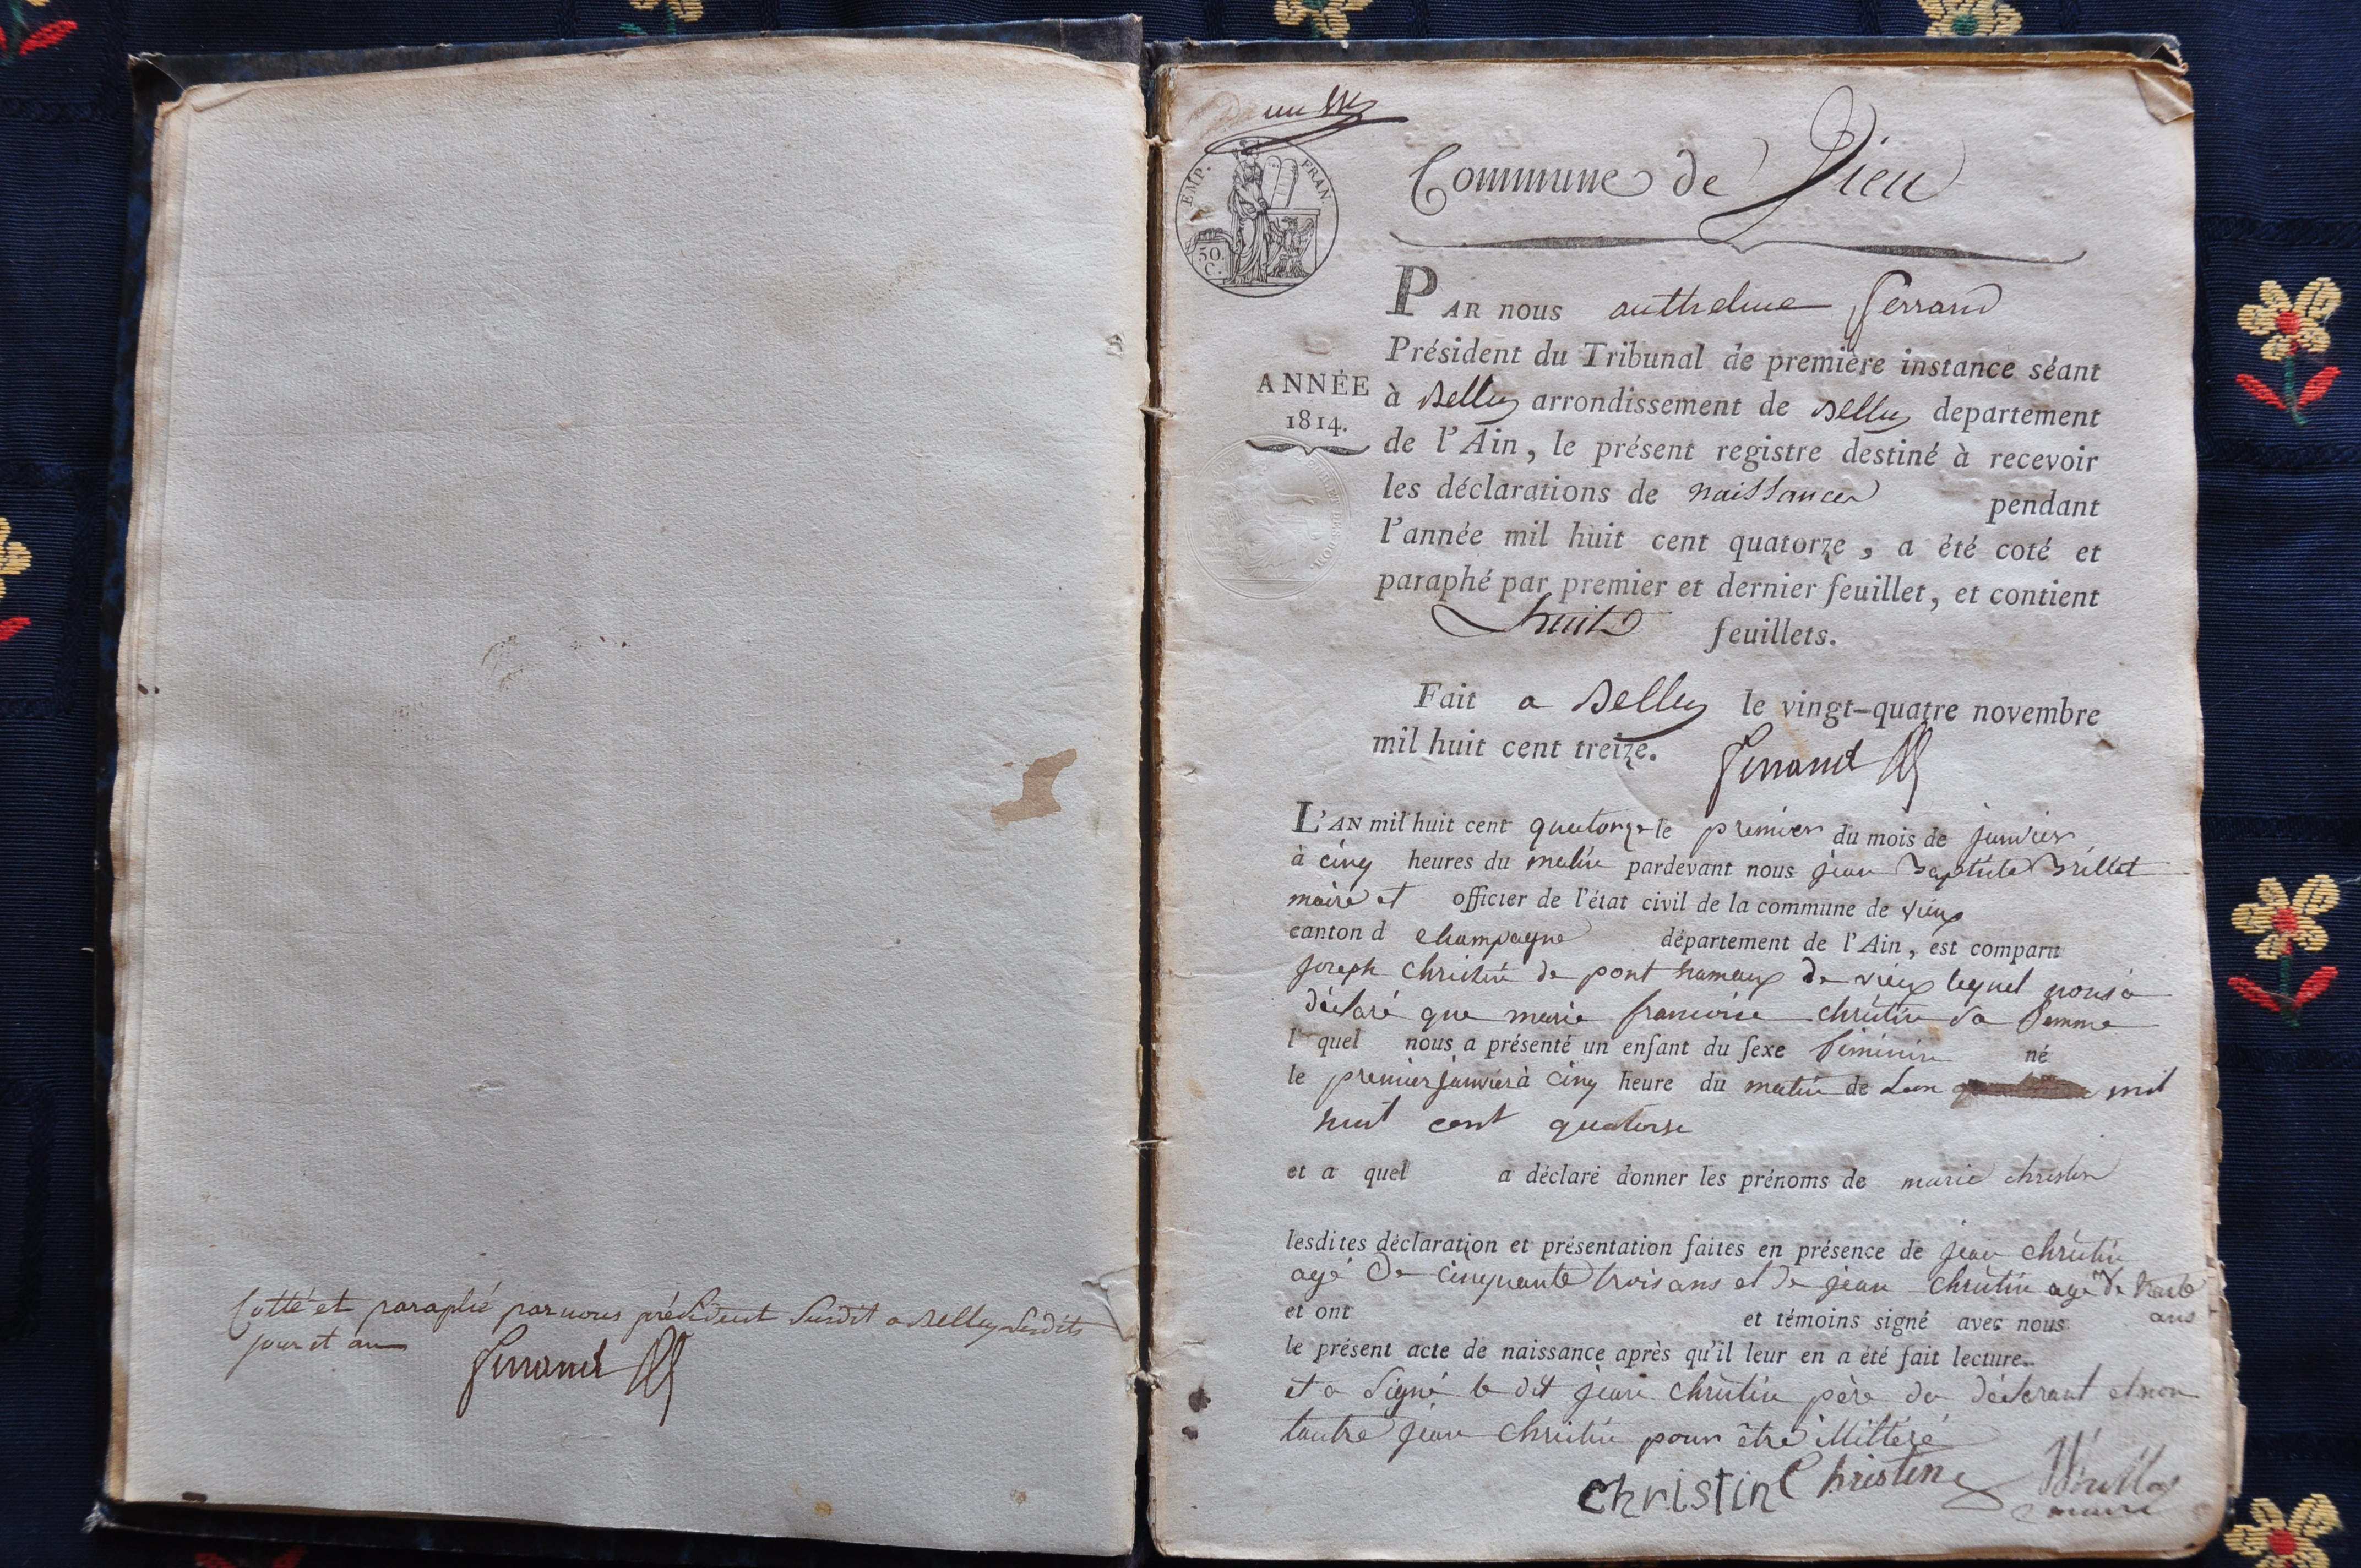 Cotté et paraphé par nous président Susdit a Belley Lesdits
jour et an
Ferrand
un
EMP. FRAN.
50
C.
Commune de Vieu
PAR nous anthelme ferrand
Président du Tribunal de première instance séant
ANNÉE
1814.
à Belley arrondissement de Belley departement
de l'Ain, le présent registre destiné à recevoir
les déclarations de naissances pendant
l'année mil huit cent quatorze, a été coté et
paraphé par premier et dernier feuillet, et contient
huit feuillets.
Fait a Belley le vingt-quatre novembre
mil huit cent treize.
Ferrand
L'AN mil huit cent quatorze le premier du mois de janvier
à cinq heures du matin pardevant nous jean Baptiste Brillat
maire et officier de l'état civil de la commune de vieux
canton d champagne département de l'Ain, est comparu
joseph christin de pont hameaux de vieux lequel nous a
déclaré que marie francoise christin sa femme
l quel nous a présenté un enfant du sexe feminin né
le premier janvier à cinq heure du matin de Lan mil
huit cent quatorse
et a quel a déclaré donner les prénoms de marie christin
lesdites déclaration et présentation faites en présence de jean christin
agé de cinquante trois ans et de jean christin agé de trente
ans
et ont et témoins signé avec nous
le présent acte de naissance après qu'il leur en a été fait lecture.
et a signé le dit jean christin père du déclarant et non
lautre jean christin pour être illitéré
christin Christin
Brillat
maire